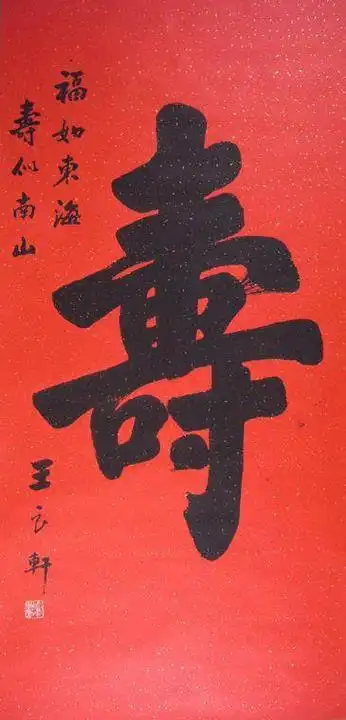 壽
福如東海
壽似南山
王良軒